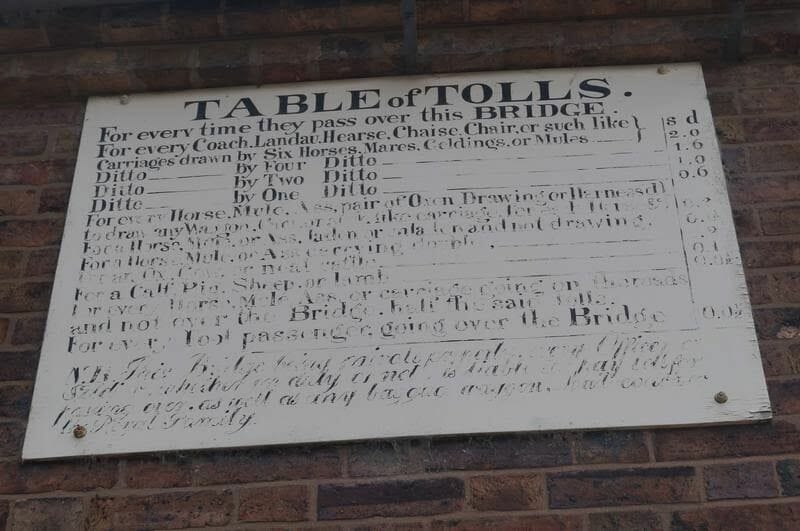 TABLE of TOLLS.
For every time they pass over this BRIDGE.
For every Coach, Landau, Hearse, Chaise, Chair, or such like } s d
Carriages drawn by Six Horses, Mares, Geldings, or Mules 2.0
Ditto by Four Ditto 1.6
Ditto by Two Ditto 1.0
Ditto by One Ditto 0.6
For every Horse, Mule, Ass, pair of Oxen Drawing or Harness'd
to draw any Waggon, like carriage, for
For a Horse, Mule, or Ass, laden or and not drawing,
For a Horse, Mule, or Ass carrying double,
For an Ox, Cow, or neat cattle
For a Calf, Pig, Sheep, or lamb
For every Horse, Mule, Ass, or carriage going on the roads
and not over the Bridge, half the said tolls.
For every Foot passenger going over the Bridge
N.B. This Bridge being private property, every Officer or
Soldier, whether on duty or not, is liable to pay toll for
passing over, as well as any baggage waggon,
the Royal Family.